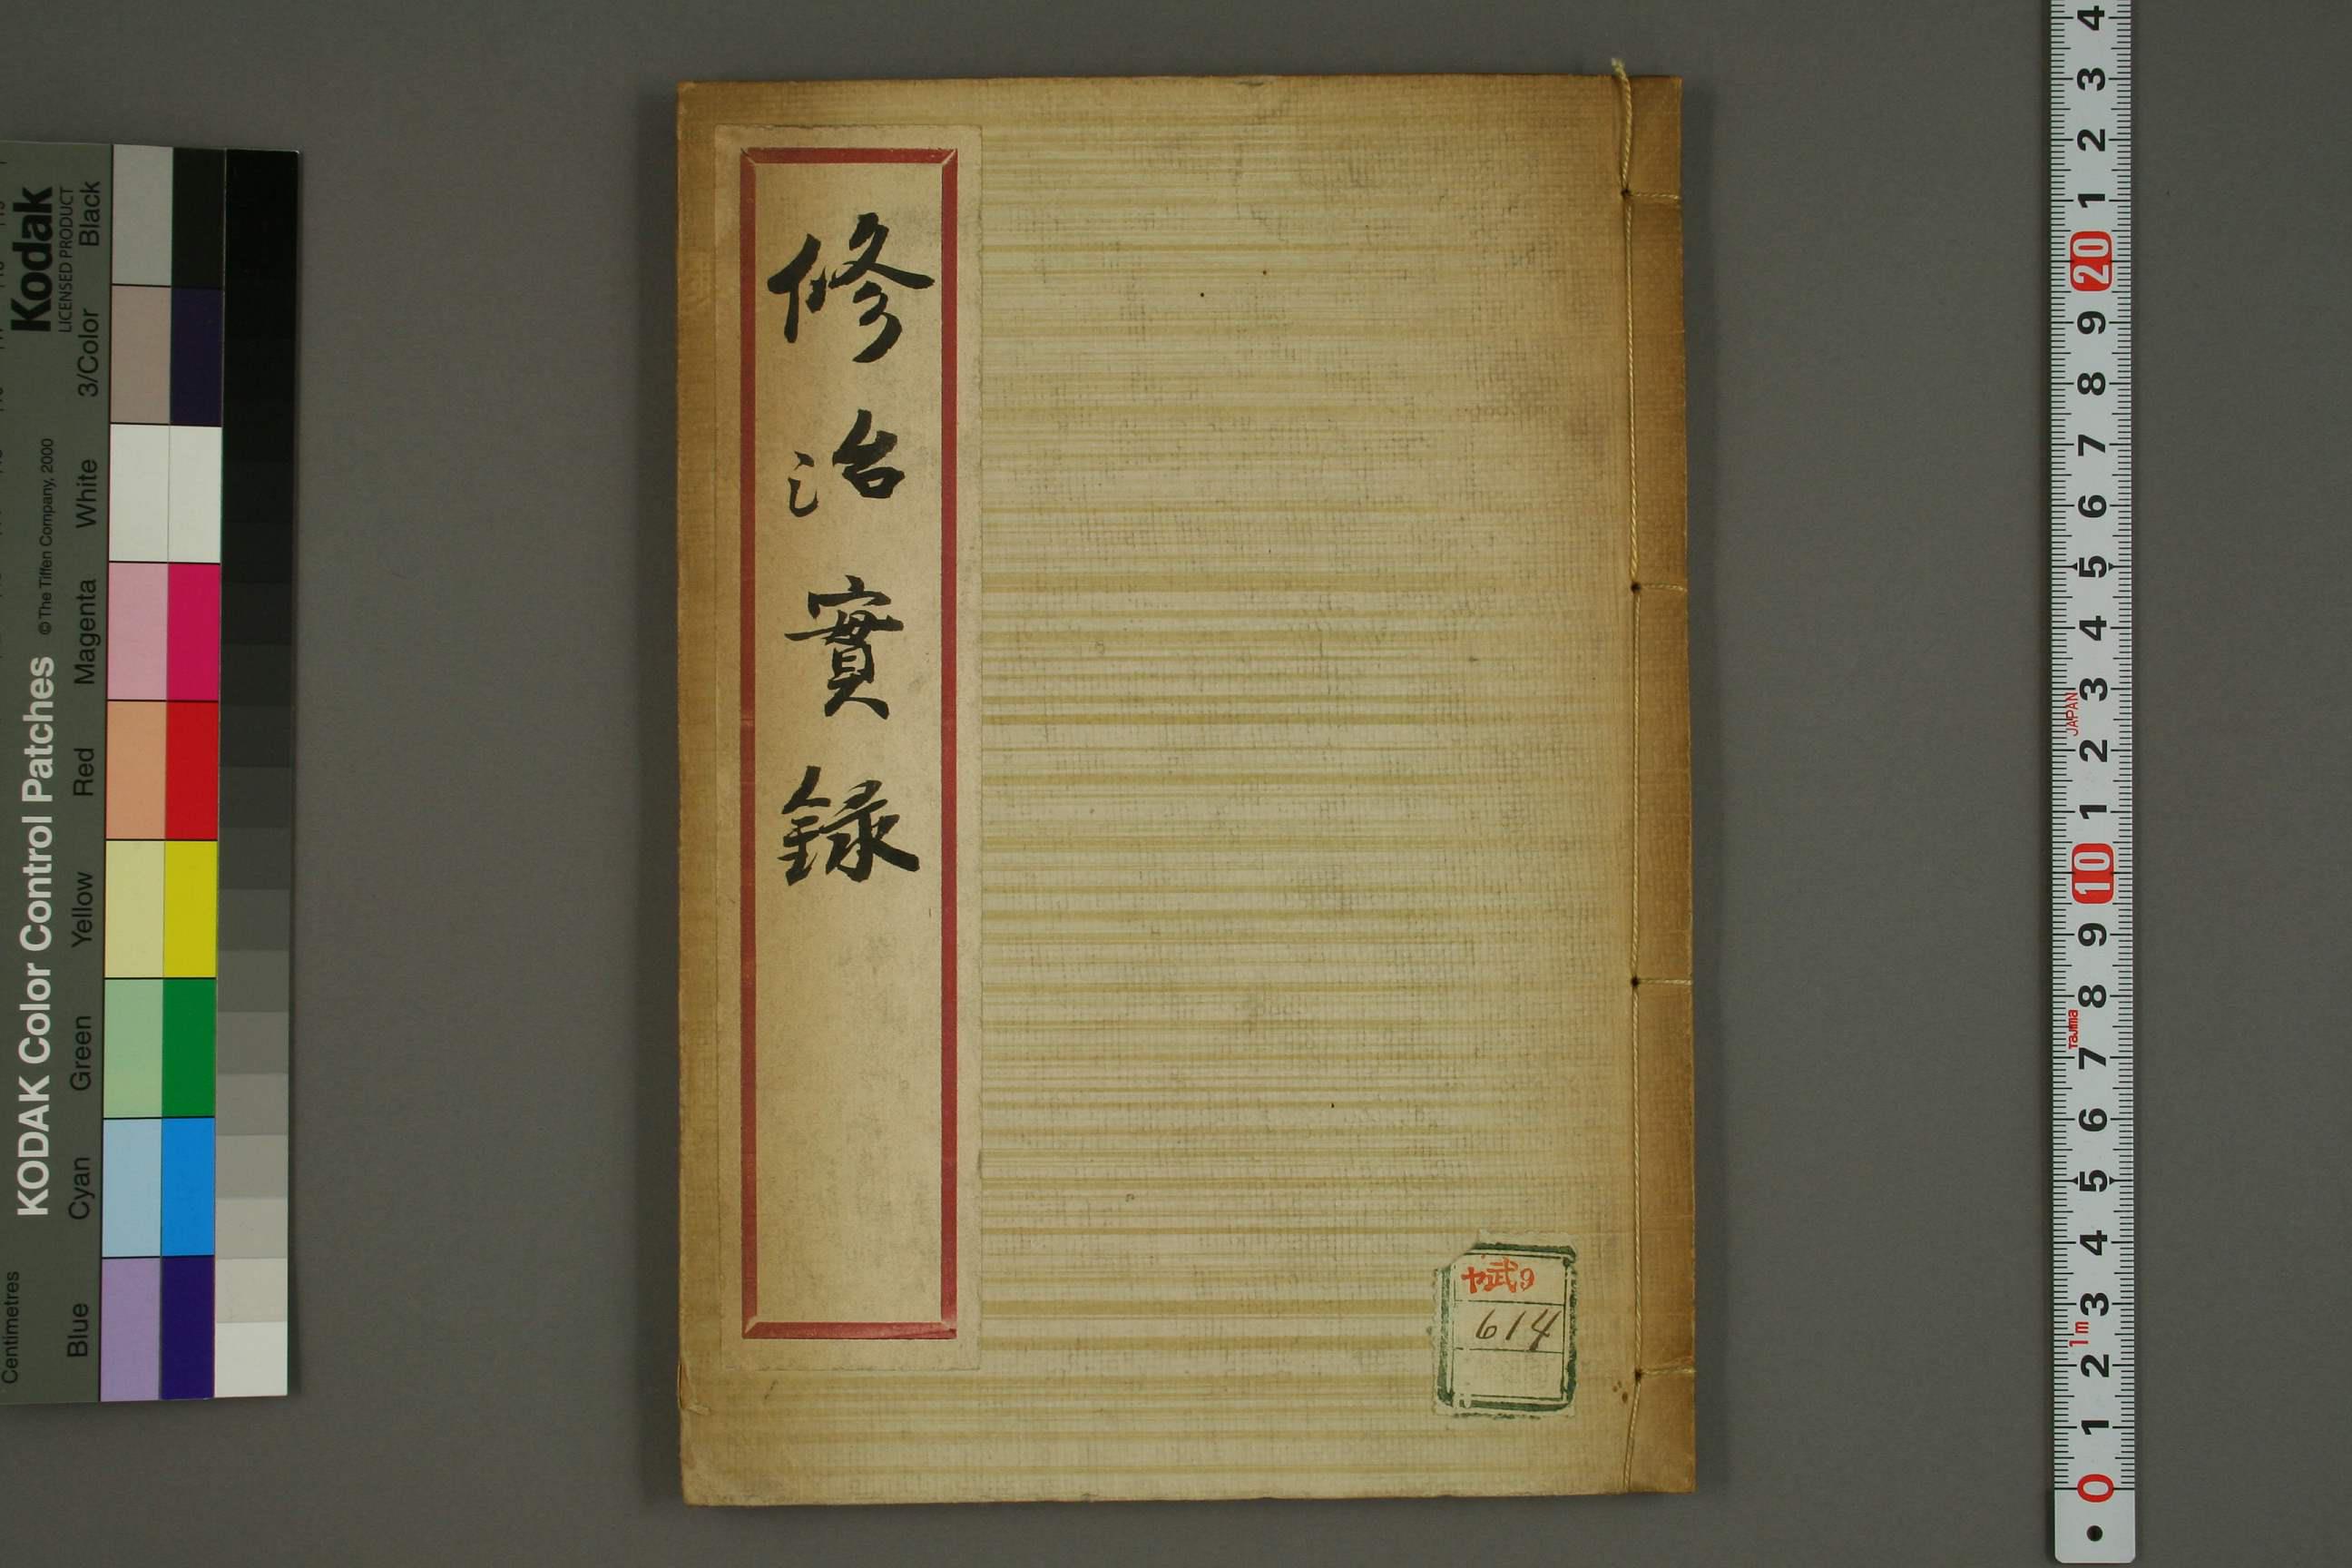 修治實録
ヤ武9
614
Kodak
LICENSED PRODUCT
KODAK Color Control Patches
©The Tiffen Company, 2000
Centimetres
Blue
Cyan
Green
Yellow
Red
Magenta
White
3/Color
Black
4
3
2
1
20
9
8
7
6
5
4
3
JAPAN
2
1
10
9
8
Tajima
7
6
5
4
3
1m
2
1
0